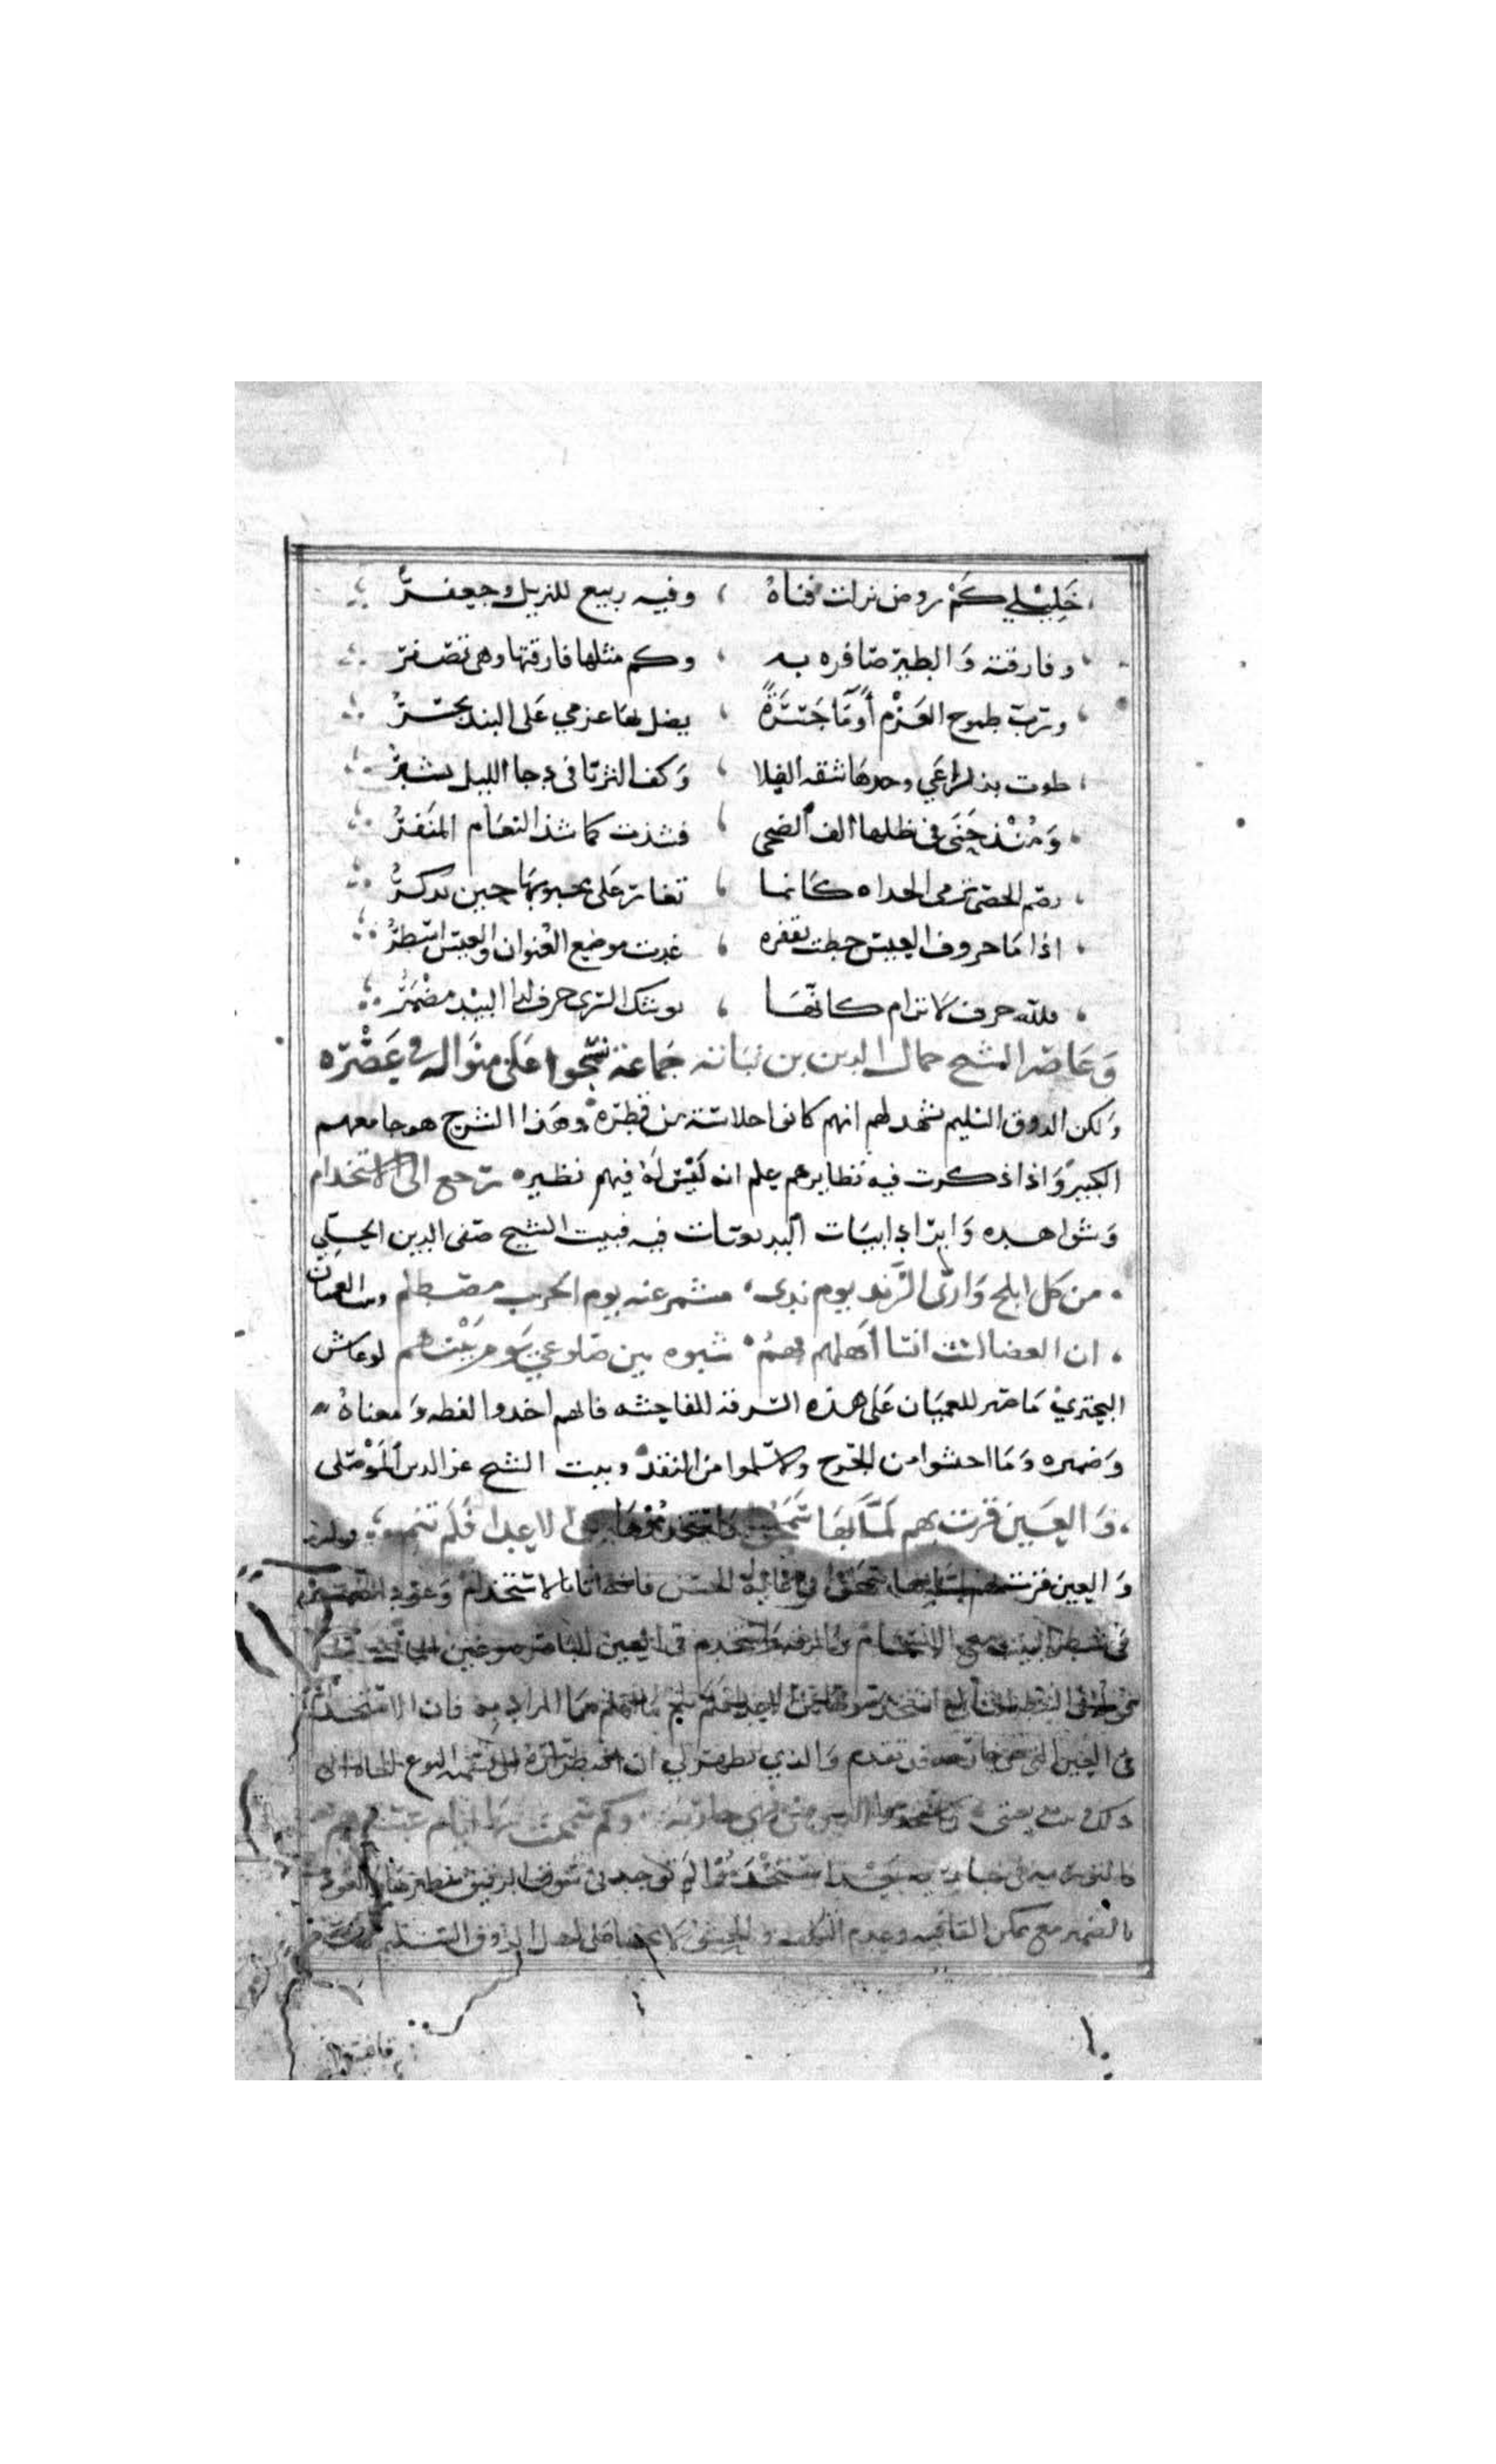 خَلِيْلِي كَمْ روض نزلت فناهُ ، وفيه ربيع للنزيل وجعفرُ
وفارقته وَالطير صَافره به ، وكم مثلها فارقتها وهى تصفر
وربّ طموح العَزْم أومَا جَسْرَةٌ ، يضل بهَا عزمي عَلى البيد يجسُرُ
طوت بذراعي وخدهَا شقه الفلا ، وَكف الثريَّا فى دجا الليل يشبرُ
في ظلها الف الضحى ، فشذت كما شذ النعَام المنَفرُ
بصم الحصَى ترمى الحداه كَانما ، تغار عَلى محبوبهَا حين يذكرُ
اذا مَا حروف العيس خطت بقفره ، غدت موضع العُنوان والعيس اسْطرُ
فلله حرف لَا ترام كانّهَا ، لوشك السرى حرف لدا البيْد مضْمَرُ
وَعَاصَر الشيخ جمال الدين بن نبَاتة جَماعَة نسَجُوا عَلى منوَاله فى عَصْرِه
وَلكن الذوق السَّليم يشهد لهم انهم كانوا حلاسَته من قطِرَه وهَذا الشرح هو جَامعهم
الكبير وَاذا ذكرت فيه نظايرهم علم انه لَيْسَ لَهُ فيهم نظير ترجع الى الاستخدام
وَشَوَاهده وَايرَاد ابيَات البديعيَات فيه فبيت الشيخ صَفى الدين الحلِّي
من كل ابلج وَارى الزّند يوم ندى ، مشمر عنه يوم الحرب مصْطلم وبيت العميان
ان الغضا لست انسَا أهلهم فهمُ ، شبوه بين ضلوعي يَومَ بَيْنهم لو عَاش
البحتريُ مَا صَبر للعميَان عَلى هذه السَّرقة الفاحشه فانهم اخذوا لفظه وَمعناهُ
وَضميره وَمَا احشوا من الجَرح ولا سَلموا من النقد وبيت الشيخ عز الدين المَوْصلى
وَالعَيْن قرت بهم لَمَّا بهَا سَمَحُوا وَاستخدمُوهَا من الاعدا فَلَم تنم
وَالعين قرت بهم لما بها سمحوا فى غاية الحسْن فانه اتا بالاستخدام وَعود الضمير
فى شطر البيت مع الانسجَام وَالرقه وَاستخدم فى العين الناصره وعين المال
فى العين التى هى جَارحه قد تقدم وَالذي يظهر لي ان اضطرَاره الى تسْمية النوع الجَاه الى
ذلك وبيت بديعيتى وَاستخدموا العين منى فهي جَاريَة وكم سَمحت بهَا ايام عسْرهم
فالتوريه فى جَاريه بعد استخْدمُوا لم توجد فى سوق الرقيق نظيرهَا والعود
بالضمير مع تمكن القافيه وعدم التكلف والحشو لَا يخفا على اهل الذوق السَّليم